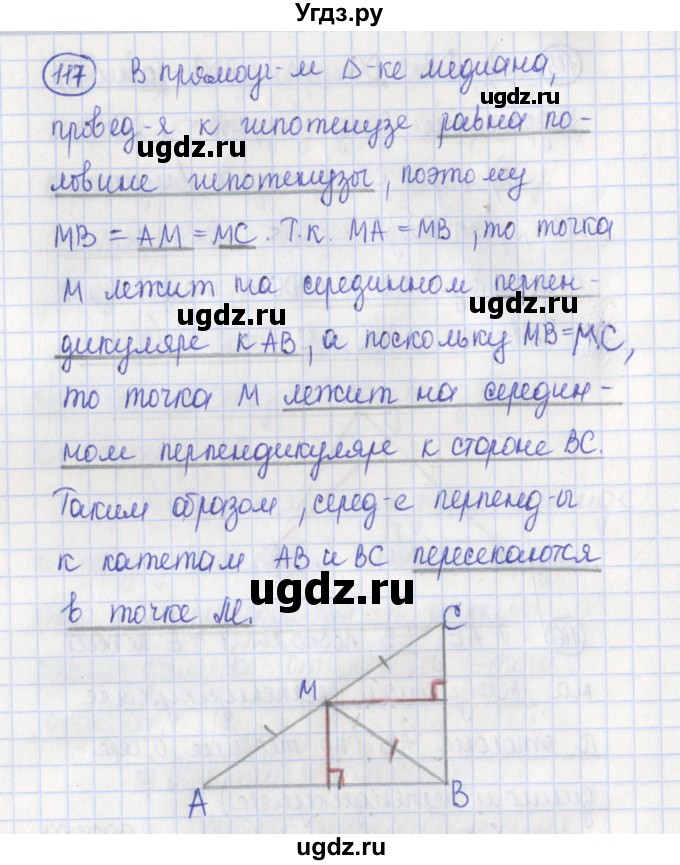 Угдз.ру
117 В прямоуг-м Δ-ке медиана,
провед-я к гипотенузе равна по-
ловине гипотенузы, поэтому
MB = AM = MC. Т.к. MA = MB, то точка
M лежит на серединном перпен-
дикуляре к AB, а поскольку MB = MC,
то точка M лежит на середин-
ном перпендикуляре к стороне BC.
Таким образом, серед-е перпенд-ы
к катетам AB и BC пересекаются
в точке M.
C
M
A
B
ugdz.ru
ugdz.ru
ugdz.ru
ugdz.ru
ugdz.ru
ugdz.ru
ugdz.ru
ugdz.ru